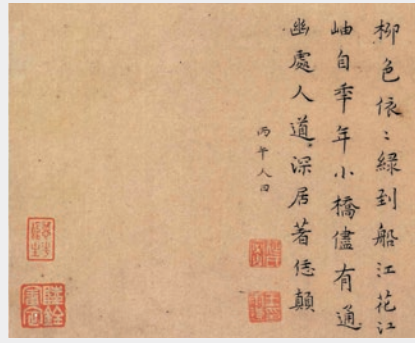 柳色依〻綠到船江花江
岫自季年小橋儘有通
幽處人道深居著恁顛
丙午人日